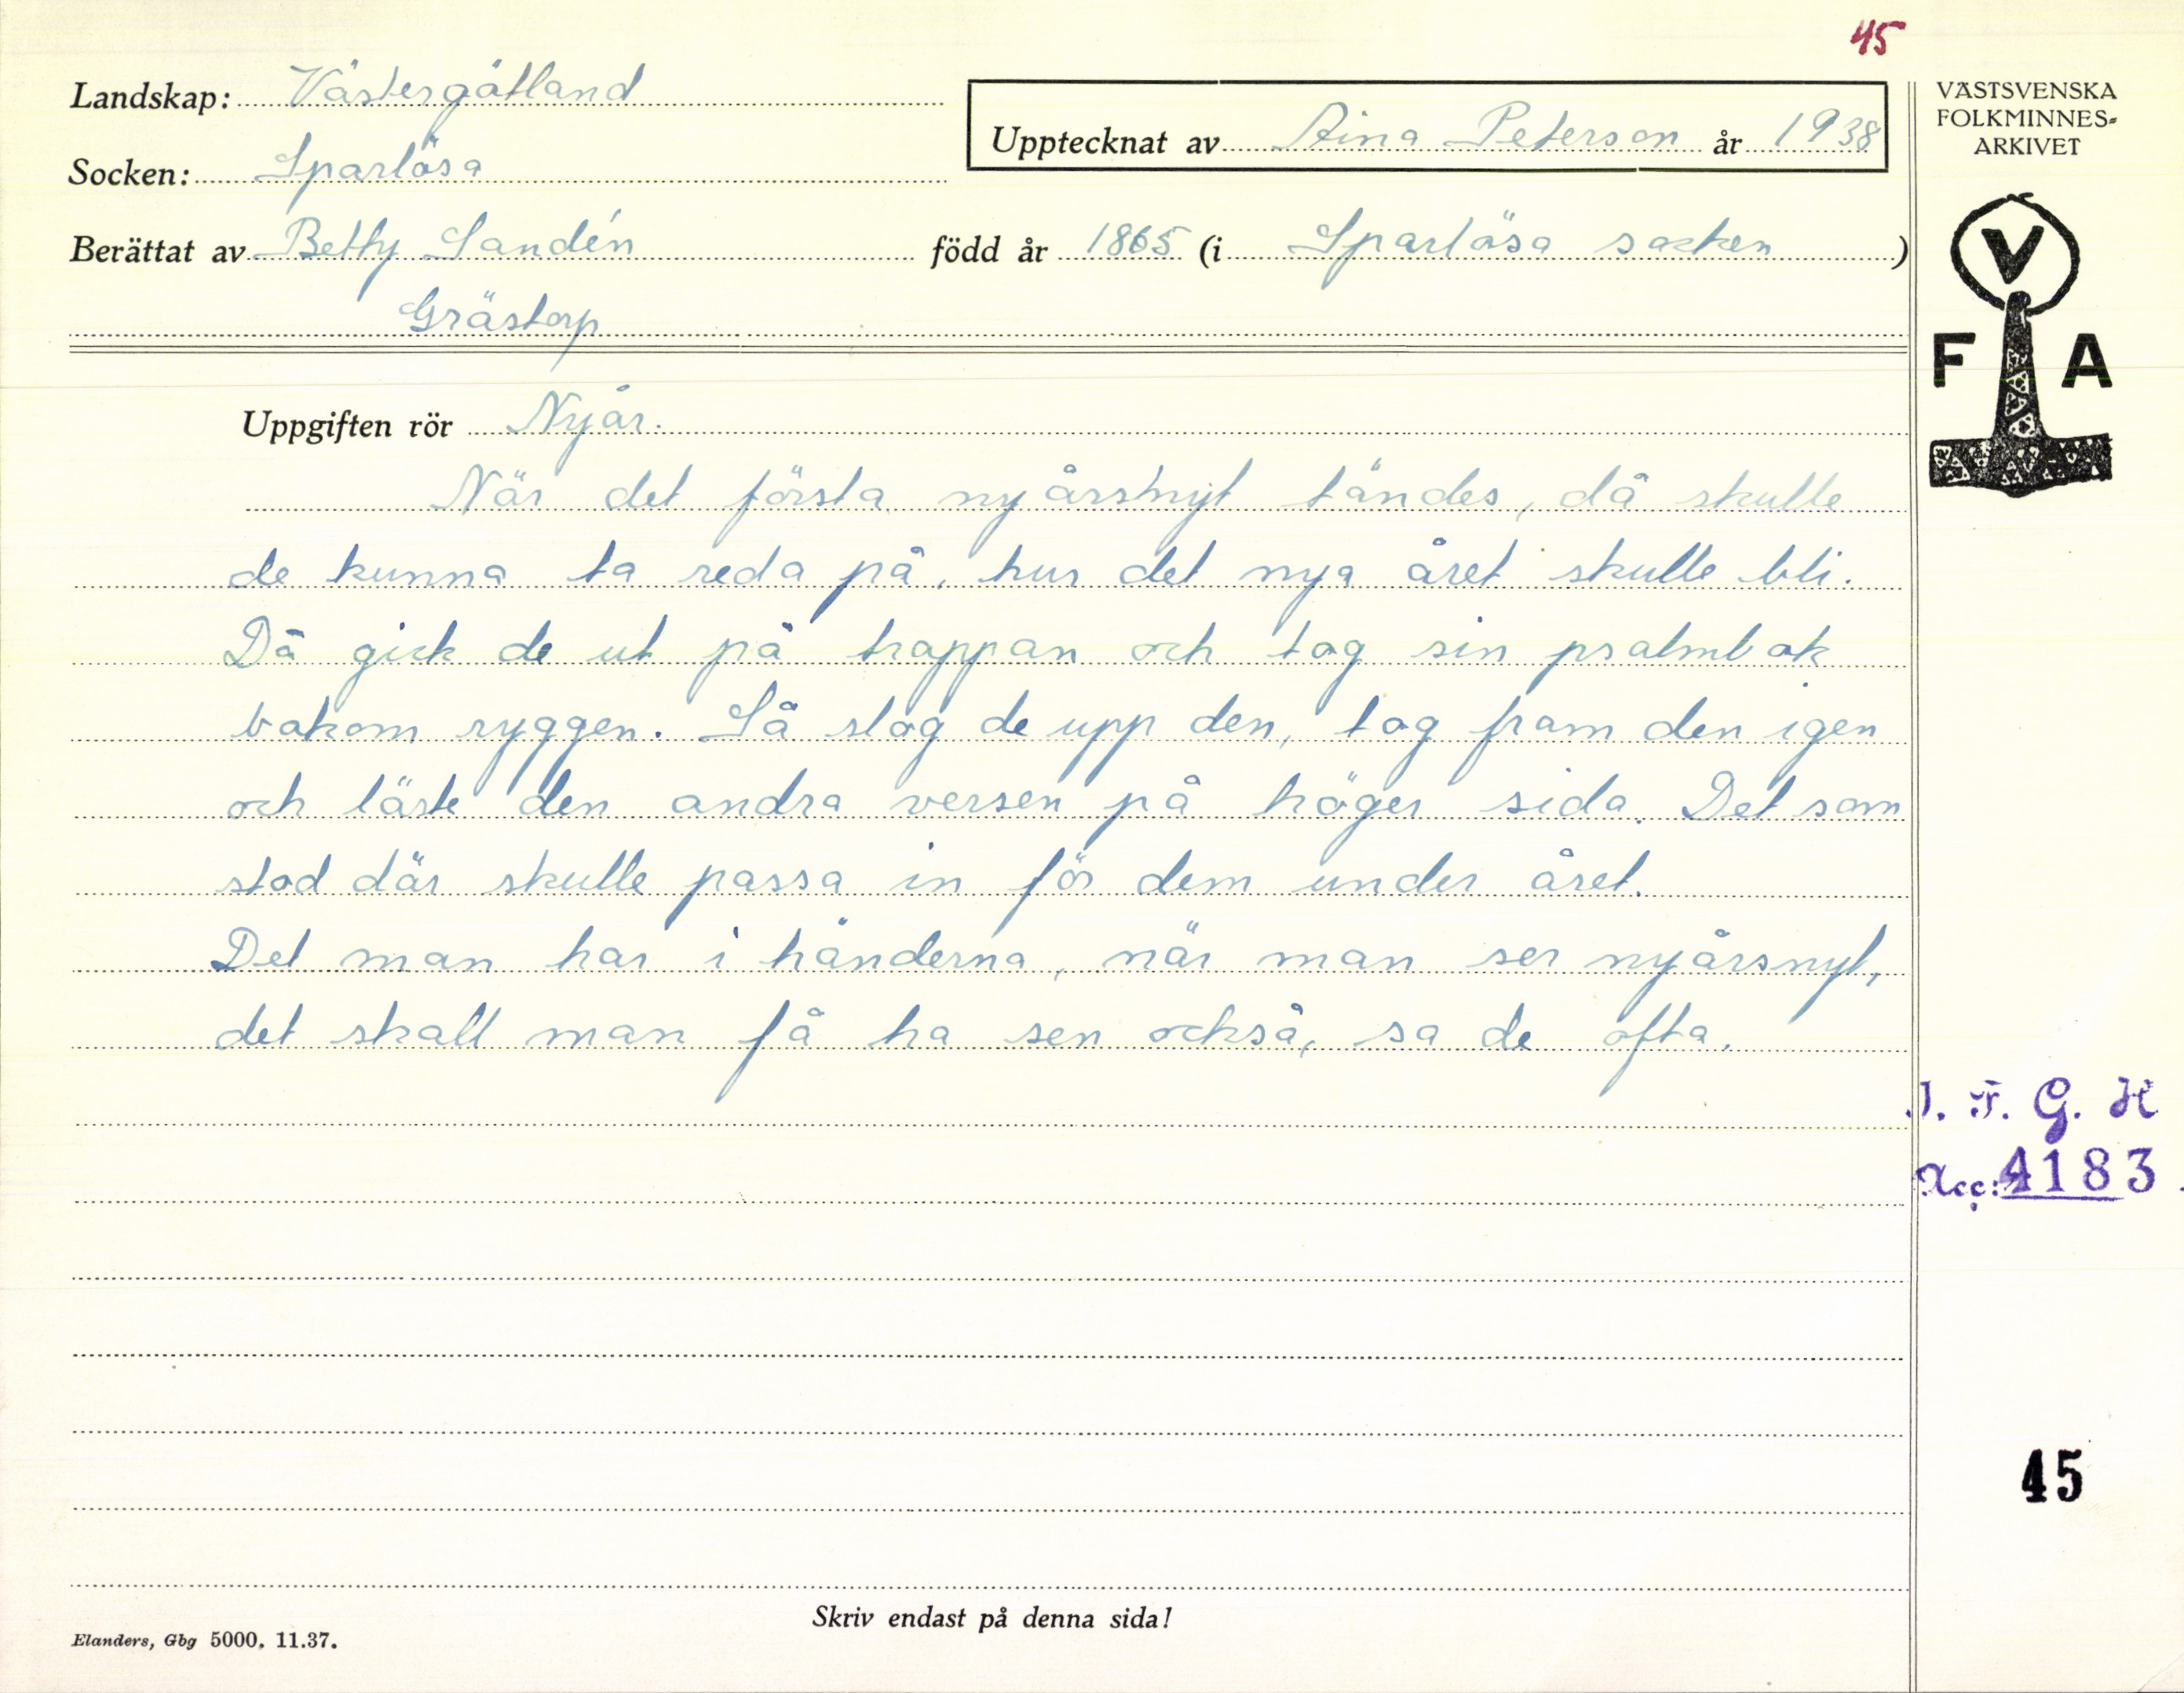 45
Landskap: Västergötland
Upptecknat av Aina Peterson år 1938
Socken: Sparlösa
Berättat av Betty Sandén född år 1865 (i Sparlösa socken)
Grästorp
VÄSTSVENSKA
FOLKMINNES-
ARKIVET
V
F A
Uppgiften rör Nyår.
När det första nyårsnyt tändes, då skulle
de kunna ta reda på, hur det nya året skulle bli.
Då gick de ut på trappan och tog sin psalmbok
bakom ryggen. Så slog de upp den, tog fram den igen
och läste den andra versen på höger sida. Det som
stod där skulle passa in för dem under året.
Det man har i händerna, när man ser nyårsnyt,
det skall man få ha sen också, sa de ofta.
I. F. G. H
Acc: 4183.
45
Skriv endast på denna sida!
Elanders, Gbg 5000. 11.37.